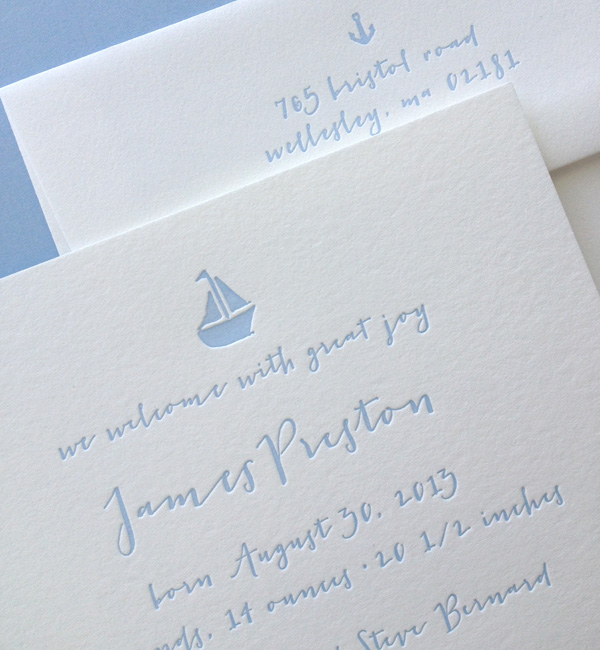 765 bristol road
wellesley, ma 02181
we welcome with great joy
James Preston
born August 30, 2013
14 ounces · 20 1/2 inches
Steve Bernard